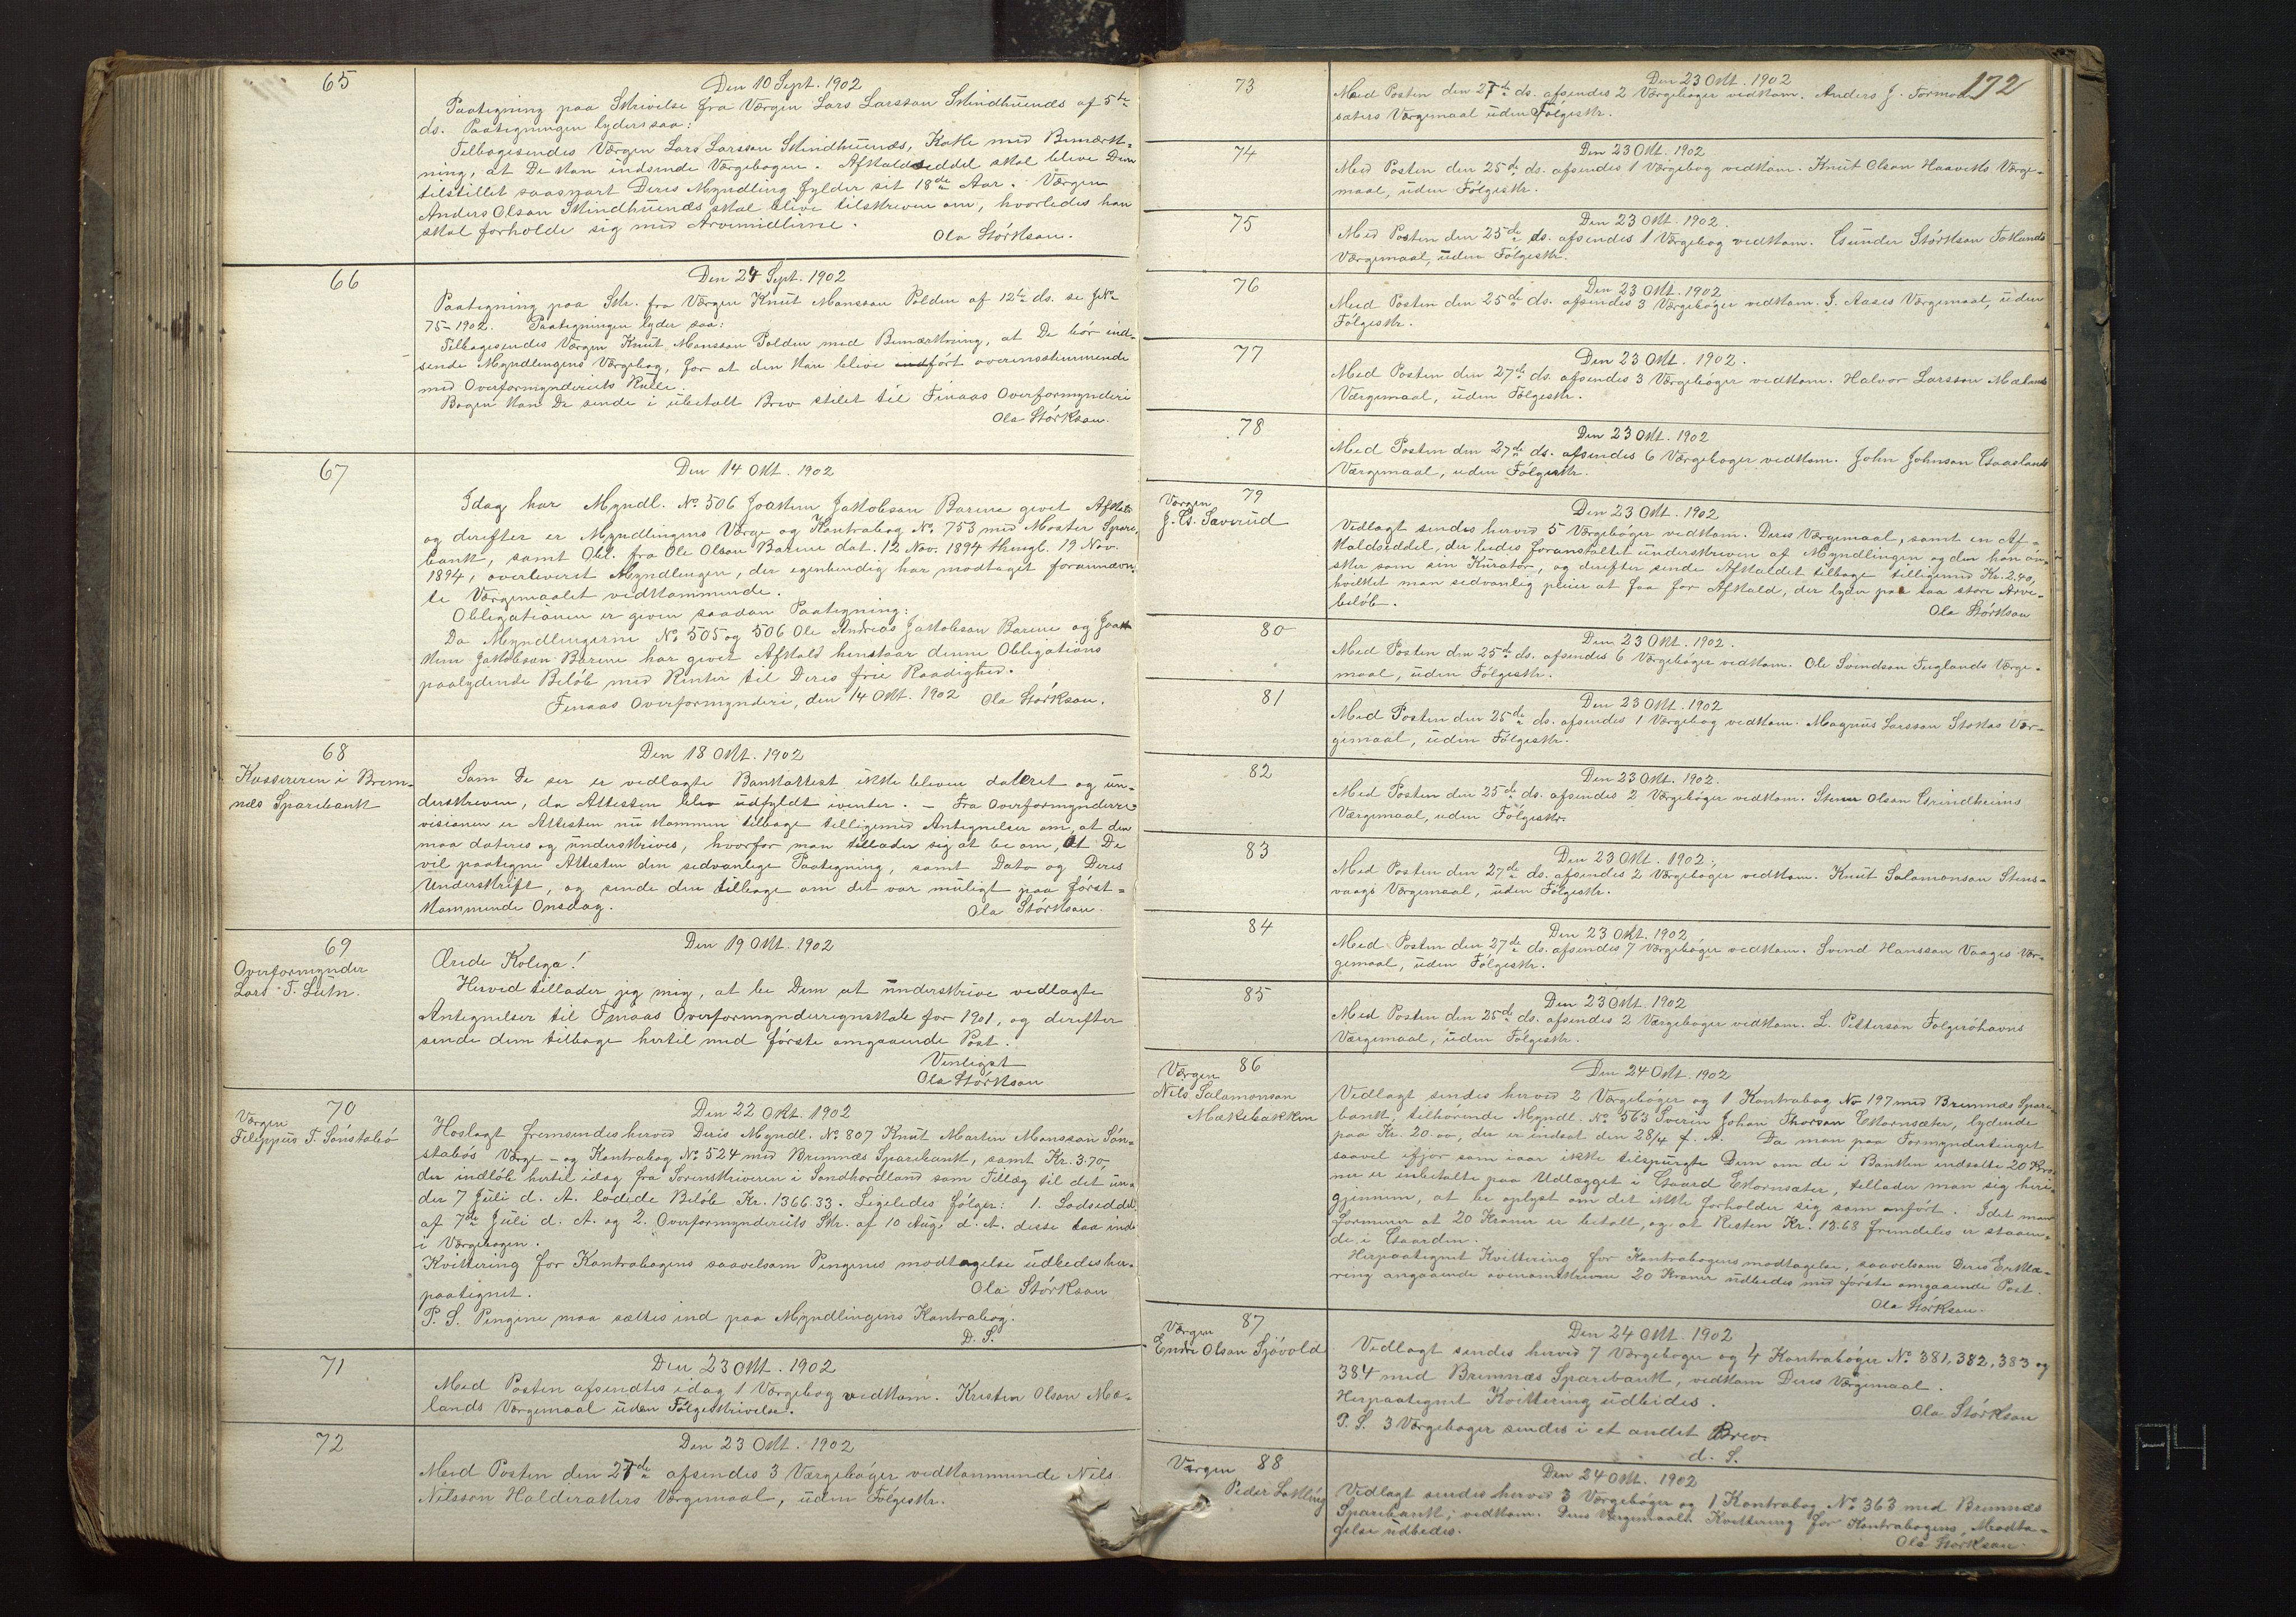 65
Den 10 Sept. 1902
Paategning paa Skrivelse fra Værgen Lars Larsson Skindhuenæs af 5te
ds. Paategningen lyder saa:
Tilbagesendes Værgen Lars Larsson Skindhuenæs, Kalle med Bemærk-
ning, at De kan indsende Værgebogen. Afkaldseddel skal blive Dem
tilstillet saasnart Deres Myndling fylder sit 18de Aar. Værgen
Anders Olson Skindhuenæs skal blive tilskreven om, hvorledes han
skal forholde sig med Arvemidlerne.
Ola Størkson.
66
Den 24 Sept. 1902
Paategning paa Skr. fra Værgen Knut Monsson Polden af 12te ds. se J.No
75-1902. Paategningen lyder saa:
Tilbagesendes Værgen Knut Monsson Polden med Bemærkning, at De bør ind-
sende Myndlingens Værgebog, for at den kan blive indført overensstemmende
med Overformynderiets Rulle.
Bogen kan De sende i ubetalt Brev stilet til Finaas Overformynderi
Ola Størkson.
67
Den 14 Okt. 1902
Idag har Myndl. No 506 Joakim Jakobson Barane givet Afkald
og derefter er Myndlingens Værge og Kontrabog No 753 med Moster Spare-
bank, samt Obl. fra Ole Olson Barane dat. 12 Nov. 1894 thingl. 19 Nov.
1894, overleveret Myndlingen, der egenhendig har modtaget forannævn-
te Værgemaalet vedkommende.
Obligationen er given saadan Paategning:
Da Myndlingerne No 505 og 506 Ole Andreas Jakobson Barane og Joa-
kim Jakobson Barane har givet Afkald henstaar denne Obligations
paalydende Beløb med Renter til Deres frie Raadighed.
Finaas Overformynderi, den 14 Okt. 1902 Ola Størkson.
68
Kassereren i Brem-
næs Sparebank
Den 18 Okt. 1902
Som De ser er vedlagte Bankattest ikke bleven dateret og un-
derskreven, da Attesten blev udfyldt iventer. – Fra Overformynderre-
visionen er Attesten nu kommen tilbage tilligemed Antegnelser om, at den
maa dateres og underskrives, hvorfor man tillader sig at be om, at De
vil paategne Attesten den sedvanlige Paategning, samt Dato og Deres
Underskrift, og sende den tilbage om det var muligt paa først-
kommende Onsdag.
Ola Størkson.
69
Overformynder
Lars T. Lutn.
Den 19 Okt. 1902
Ærede Kolega!
Herved tillader jeg mig, at be Dem at underskrive vedlagte
Antegnelser til Finaas Overformynderregnskab for 1901, og derefter
sende dem tilbage hertil med første omgaaende Post.
Venligst
Ola Størkson
70
Værgen
Filippus T. Sønstabø
Den 22 Okt. 1902
Hoslagt fremsendes herved Deres Myndl. No 807 Knut Martin Monsson Søn-
stabøs Værge- og Kontrabog No 524 med Bremnæs Sparebank, samt Kr. 3.70,
der indløb hertil idag fra Sorenskriveren i Søndhordland som Tillæg til det un-
der 7 Juli d. A. lodede Beløb Kr. 1366.33. Ligeledes følger: 1. Lodseddel
af 7de Juli d. A. og 2. Overformynderiets Skr. af 10 Aug. d. A. disse taa inde
i Værgebogen.
Kvittering for Kontrabogens saavelsom Pengenes modtagelse udbedes her-
paategnet.
Ola Størkson
P. S. Pengene maa sættes ind paa Myndlingens Kontrabog.
D. S.
71
Den 23 Okt. 1902
Med Posten afsendtes idag 1 Værgebog vedkom. Kristen Olson Mæ-
lands Værgemaal uden Følgeskrivelse.
72
Den 23 Okt. 1902
Med Posten den 27de afsendes 3 Værgebøger vedkommende Nils
Nilsson Halderakers Værgemaal, uden Følgeskr.
172
73
Den 23 Okt. 1902
Med Posten den 27de ds. afsendes 2 Værgebøger vedkom. Anders J. Tormod-
sæters Værgemaal uden Følgeskr.
74
Den 23 Okt. 1902
Med Posten den 25de ds. afsendes 1 Værgebog vedkom. Knut Olson Haaviks Værge-
maal, uden Følgeskr.
75
Den 23 Okt. 1902.
Med Posten den 25de ds. afsendes 1 Værgebog vedkom. Gunder Størkson Toklands
Værgemaal, uden Følgeskr.
76
Den 23 Okt. 1902
Med Posten den 25de ds. afsendes 3 Værgebøger vedkom. J. Aases Værgemaal, uden
Følgeskr.
77
Den 23 Okt. 1902.
Med Posten den 27de ds. afsendes 3 Værgebøger vedkom. Halvor Larsson Mælands
Værgemaal, uden Følgeskr.
78
Den 23 Okt. 1902
Med Posten den 27de ds. afsendes 6 Værgebøger vedkom. John Johnson Gaaslands
Værgemaal, uden Følgeskr.
79
Værgen
J. G. Saverud
Den 23 Okt. 1902
Vedlagt sendes herved 5 Værgebøger vedkom. Deres Værgemaal, samt en Af-
kaldseddel, der bedes foranstaltet underskreven af Myndlingen og den han øn-
sker som sin Kurator, og derefter sende Afkaldet tilbage tilligemed Kr. 2,40,
hvilket man sedvanlig pleier at faa for Afkald, der lyder paa saa store Arve-
beløb.
Ola Størkson
80
Den 23 Okt. 1902.
Med Posten den 25de ds. afsendes 6 Værgebøger vedkom. Ole Svendson Fuglands Værge-
maal, uden Følgeskr.
81
Den 23 Okt. 1902
Med Posten den 25de ds. afsendes 1 Værgebog vedkom. Magnus Larsson Stokas Vær-
gemaal, uden Følgeskr.
82
Den 23 Okt. 1902.
Med Posten den 25de ds. afsendes 2 Værgebøger vedkom. Stener Olson Grindheims
Værgemaal, uden Følgeskr.
83
Den 23 Okt. 1902.
Med Posten den 27de ds. afsendes 2 Værgebøger vedkom. Knut Salamonson Stens-
vaags Værgemaal, uden Følgeskr.
84
Den 23 Okt. 1902
Med Posten den 27de ds. afsendes 7 Værgebøger vedkom. Svend Hansson Vaages Vær-
gemaal, uden Følgeskr.
85
Den 23 Okt. 1902
Med Posten den 25de ds. afsendes 2 Værgebøger vedkom. L. Petterson Folgerøhavns
Værgemaal, uden Følgeskr.
86
Værgen
Nils Salamonson
Mækebakken
Den 24 Okt. 1902
Vedlagt sendes herved 2 Værgebøger og 1 Kontrabog No 197 med Bremnæs Spare-
bank, tilhørende Myndl. No 563 Sverin Johan Thorson Ekornsæter, lydende
paa Kr. 20.00, der er indsat den 28/4 f. A. Da man paa Formyndertinget
saavel ifjor som iaar ikke tilspurgte Dem om de i Banken indsatte 20 Kro-
ner er inbetalte paa Udlægget i Gaard Ekornsæter, tillader man sig heri-
gjennem, at be oplyst om det ikke forholder sig som anført. Idet man
formener at 20 Kroner er betalt, og at Resten Kr. 13.68 fremdeles er staaen-
de i Gaarden.
Herpaategnet Kvittering for Kontrabogens modtagelse, saavelsom Deres Erklæ-
ring angaaende ovenomskrevne 20 Kroner udbedes med første omgaaende Post.
Ola Størkson.
87
Værgen
Endre Olson Sjøvold
Den 24 Okt. 1902
Vedlagt sendes herved 7 Værgebøger og 4 Kontrabøger No 381, 382, 383 og
384 med Bremnæs Sparebank, vedkom Deres Værgemaal.
Herpaategnet Kvittering udbedes.
Ola Størkson
P. S. 3 Værgebøger sendes i et andet Brev.
d. S.
88
Værgen
Peder Løkling
Den 24 Okt. 1902
Vedlagt sendes herved 3 Værgebøger og 1 Kontrabog No 363 med Bremnæs
Sparebank, vedkom. Deres Værgemaal. Kvittering for Kontrabogens Modta-
gelse udbedes.
Ola Størkson.